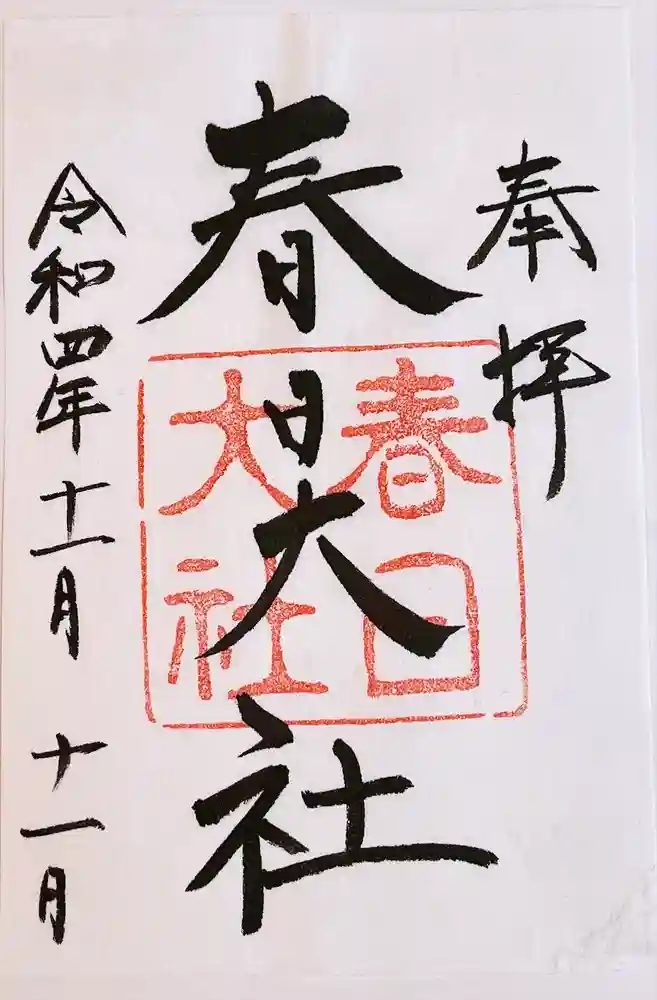 奉拝
春日大社
春日
大社
令和四年十一月十一月